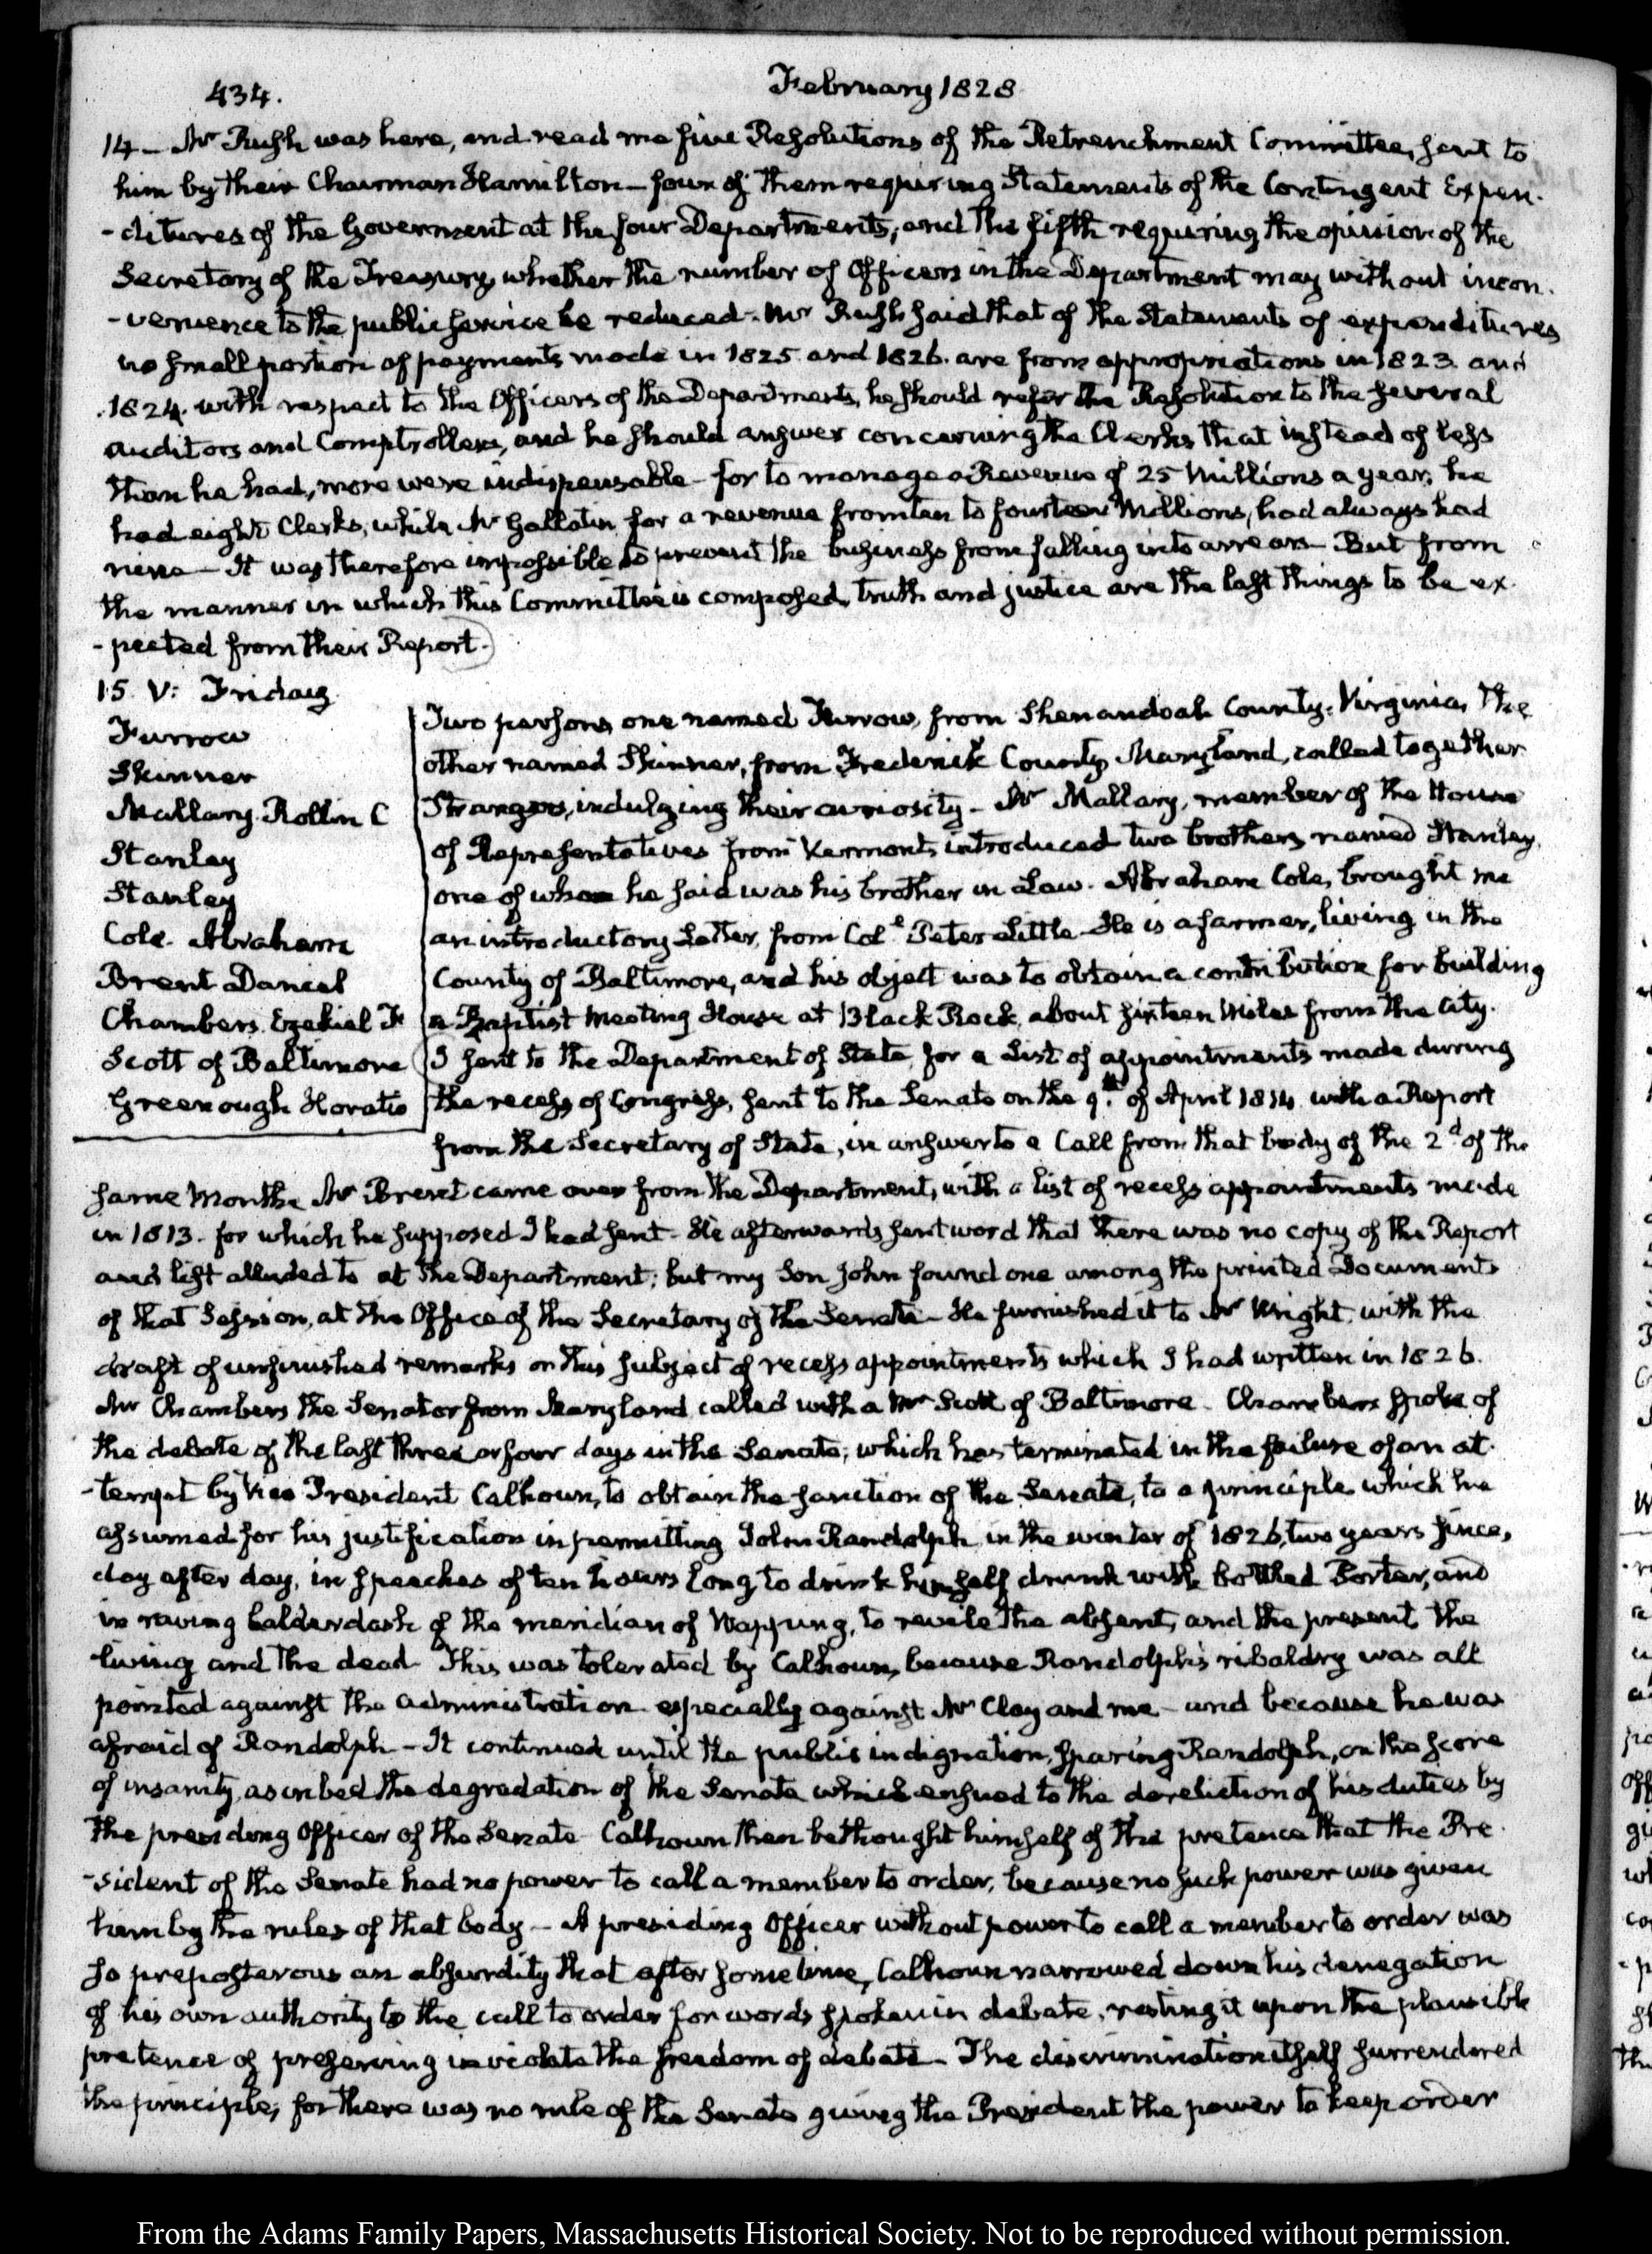 434.
February 1828
14 — Mr Rush was here, and read me five Resolutions of the Retrenchment Committee, sent to
him by their Chairman Hamilton — four of them requiring Statements of the Contingent Expen-
-ditures of the Government at the four Departments, and the fifth requiring the opinion of the
Secretary of the Treasury, whether the number of Officers in the Department may without incon-
-venience to the public service be reduced. Mr Rush said that of the Statements of expenditures
no small portion of payments made in 1825 and 1826. are from appropriations in 1823. and
1824. with respect to the Officers of the Departments, he should refer the Resolution to the several
Auditors and Comptrollers, and he should answer concerning the Clerks that instead of less
than he had, more were indispensable — for to manage a Revenue of 25 Millions a year, he
had eight Clerks, while Mr Gallatin for a revenue from ten to fourteen Millions, had always had
nine — It was therefore impossible to prevent the business from falling into arrears — But from
the manner in which this Committee is composed, truth and justice are the last things to be ex-
-pected from their Report.
15. V: Friday.
Furrow
Skinner
Mallary. Rollin C
Stanley
Stanley
Cole. Abraham
Brent Daniel
Chambers. Ezekiel F
Scott of Baltimore
Greenough Horatio
Two persons, one named Furrow, from Shenandoah County, Virginia, the
other named Skinner, from Frederick County, Maryland, called together
Strangers, indulging their curiosity — Mr Mallary, member of the House
of Representatives from Vermont, introduced two brothers named Stanley,
one of whom he said was his brother in Law. Abraham Cole, brought me
an introductory Letter, from Coll. Peter Little. He is a farmer, living in the
County of Baltimore, and his object was to obtain a contribution for building
a Baptist Meeting House at Black Rock, about sixteen Miles from the City.
I sent to the Department of State for a List of appointments made during
the recess of Congress, sent to the Senate on the 9th. of April 1814 with a Report
from the Secretary of State, in answer to a Call from that body of the 2d of the
same Month. Mr Brent came over from the Department, with a list of recess appointments made
in 1813. for which he supposed I had sent — He afterwards sent word that there was no copy of the Report
and list alluded to at the Department; but my Son John found one among the printed Documents
of that Session, at the Office of the Secretary of the Senate — He furnished it to Mr Wright, with the
draft of unfinished remarks on this subject of recess appointments which I had written in 1826.
Mr Chambers the Senator from Maryland called with a Mr Scott of Baltimore. Chambers spoke of
the debate of the last three or four days in the Senate, which has terminated in the failure of an at-
-tempt by Vice President Calhoun, to obtain the sanction of the Senate, to a principle which he
assumed for his justification in permitting John Randolph in the winter of 1826, two years since,
day after day, in speeches of ten hours long to drink himself drunk with bottled Porter, and
in raving balderdash of the meridian of Wapping, to revile the absent, and the present, the
living and the dead. This was tolerated by Calhoun, because Randolph's ribaldry was all
pointed against the administration especially against Mr Clay and me — and because he was
afraid of Randolph — It continued until the public indignation, sparing Randolph, on the score
of insanity, ascribed the degradation of the Senate which ensued to the dereliction of his duties by
the presiding Officer of the Senate. Calhoun then bethought himself of the pretence that the Pre-
-sident of the Senate had no power to call a member to order, because no such power was given
him by the rules of that body — A presiding Officer without power to call a member to order was
so preposterous an absurdity that after some time, Calhoun narrowed down his denegation
of his own authority to the call to order for words spoken in debate, resting it upon the plausible
pretence of preserving inviolate the freedom of debate — The discrimination itself surrendered
the principle; for there was no rule of the Senate giving the President the power to keep order
From the Adams Family Papers, Massachusetts Historical Society. Not to be reproduced without permission.